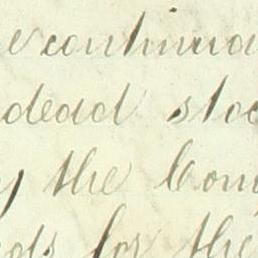 e continua
dead stoc
y the Com
ds for the